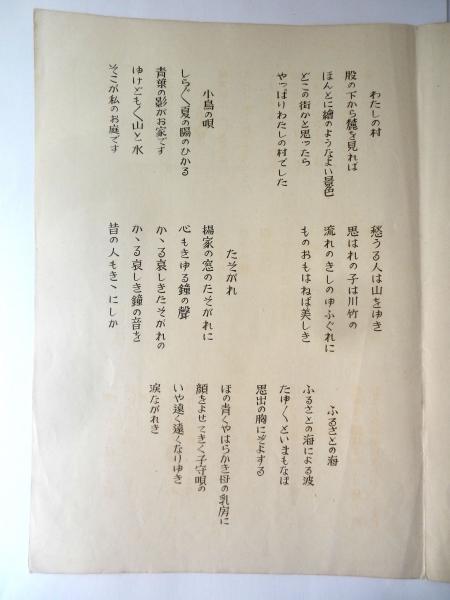 わたしの村
股の下から麓を見れば
ほんとに繪のようなよい景色
どこの街かと思ったら
やっぱりわたしの村でした
小鳥の唄
しら〴〵夏の陽のひかる
青葉の影がお家です
ゆけども〳〵山と水
そこが私のお庭です
愁うる人は山をゆき
思はれの子は川竹の
流れのきしのゆふぐれに
ものおもはねば美しき
たそがれ
揚家の窓のたそがれに
心もきゆる鐘の聲
かゝる哀しきたそがれの
かゝる哀しき鐘の音を
昔の人もきゝにしか
ふるさとの海
ふるさとの海による波
たゆ〳〵といまもなほ
思出の胸にぞよする
ほの青くやはらかき母の乳房に
顔をよせてきく子守唄の
いや遠く遠くなりゆき
涙ながれき